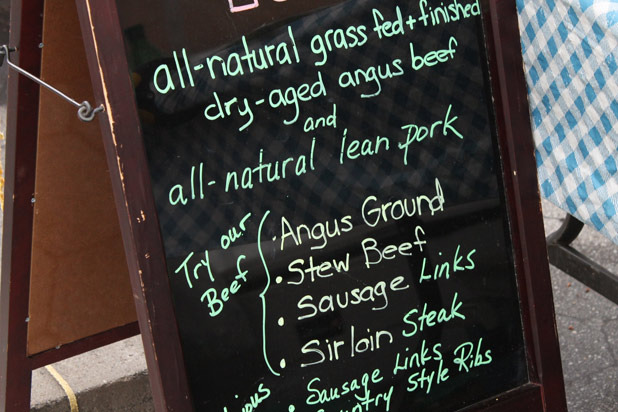 all-natural grass fed + finished
dry-aged angus beef
and
all-natural lean pork
Try our
Beef
• Angus Ground
• Stew Beef
• Sausage Links
• Sirloin Steak
• Sausage Links
Country Style Ribs